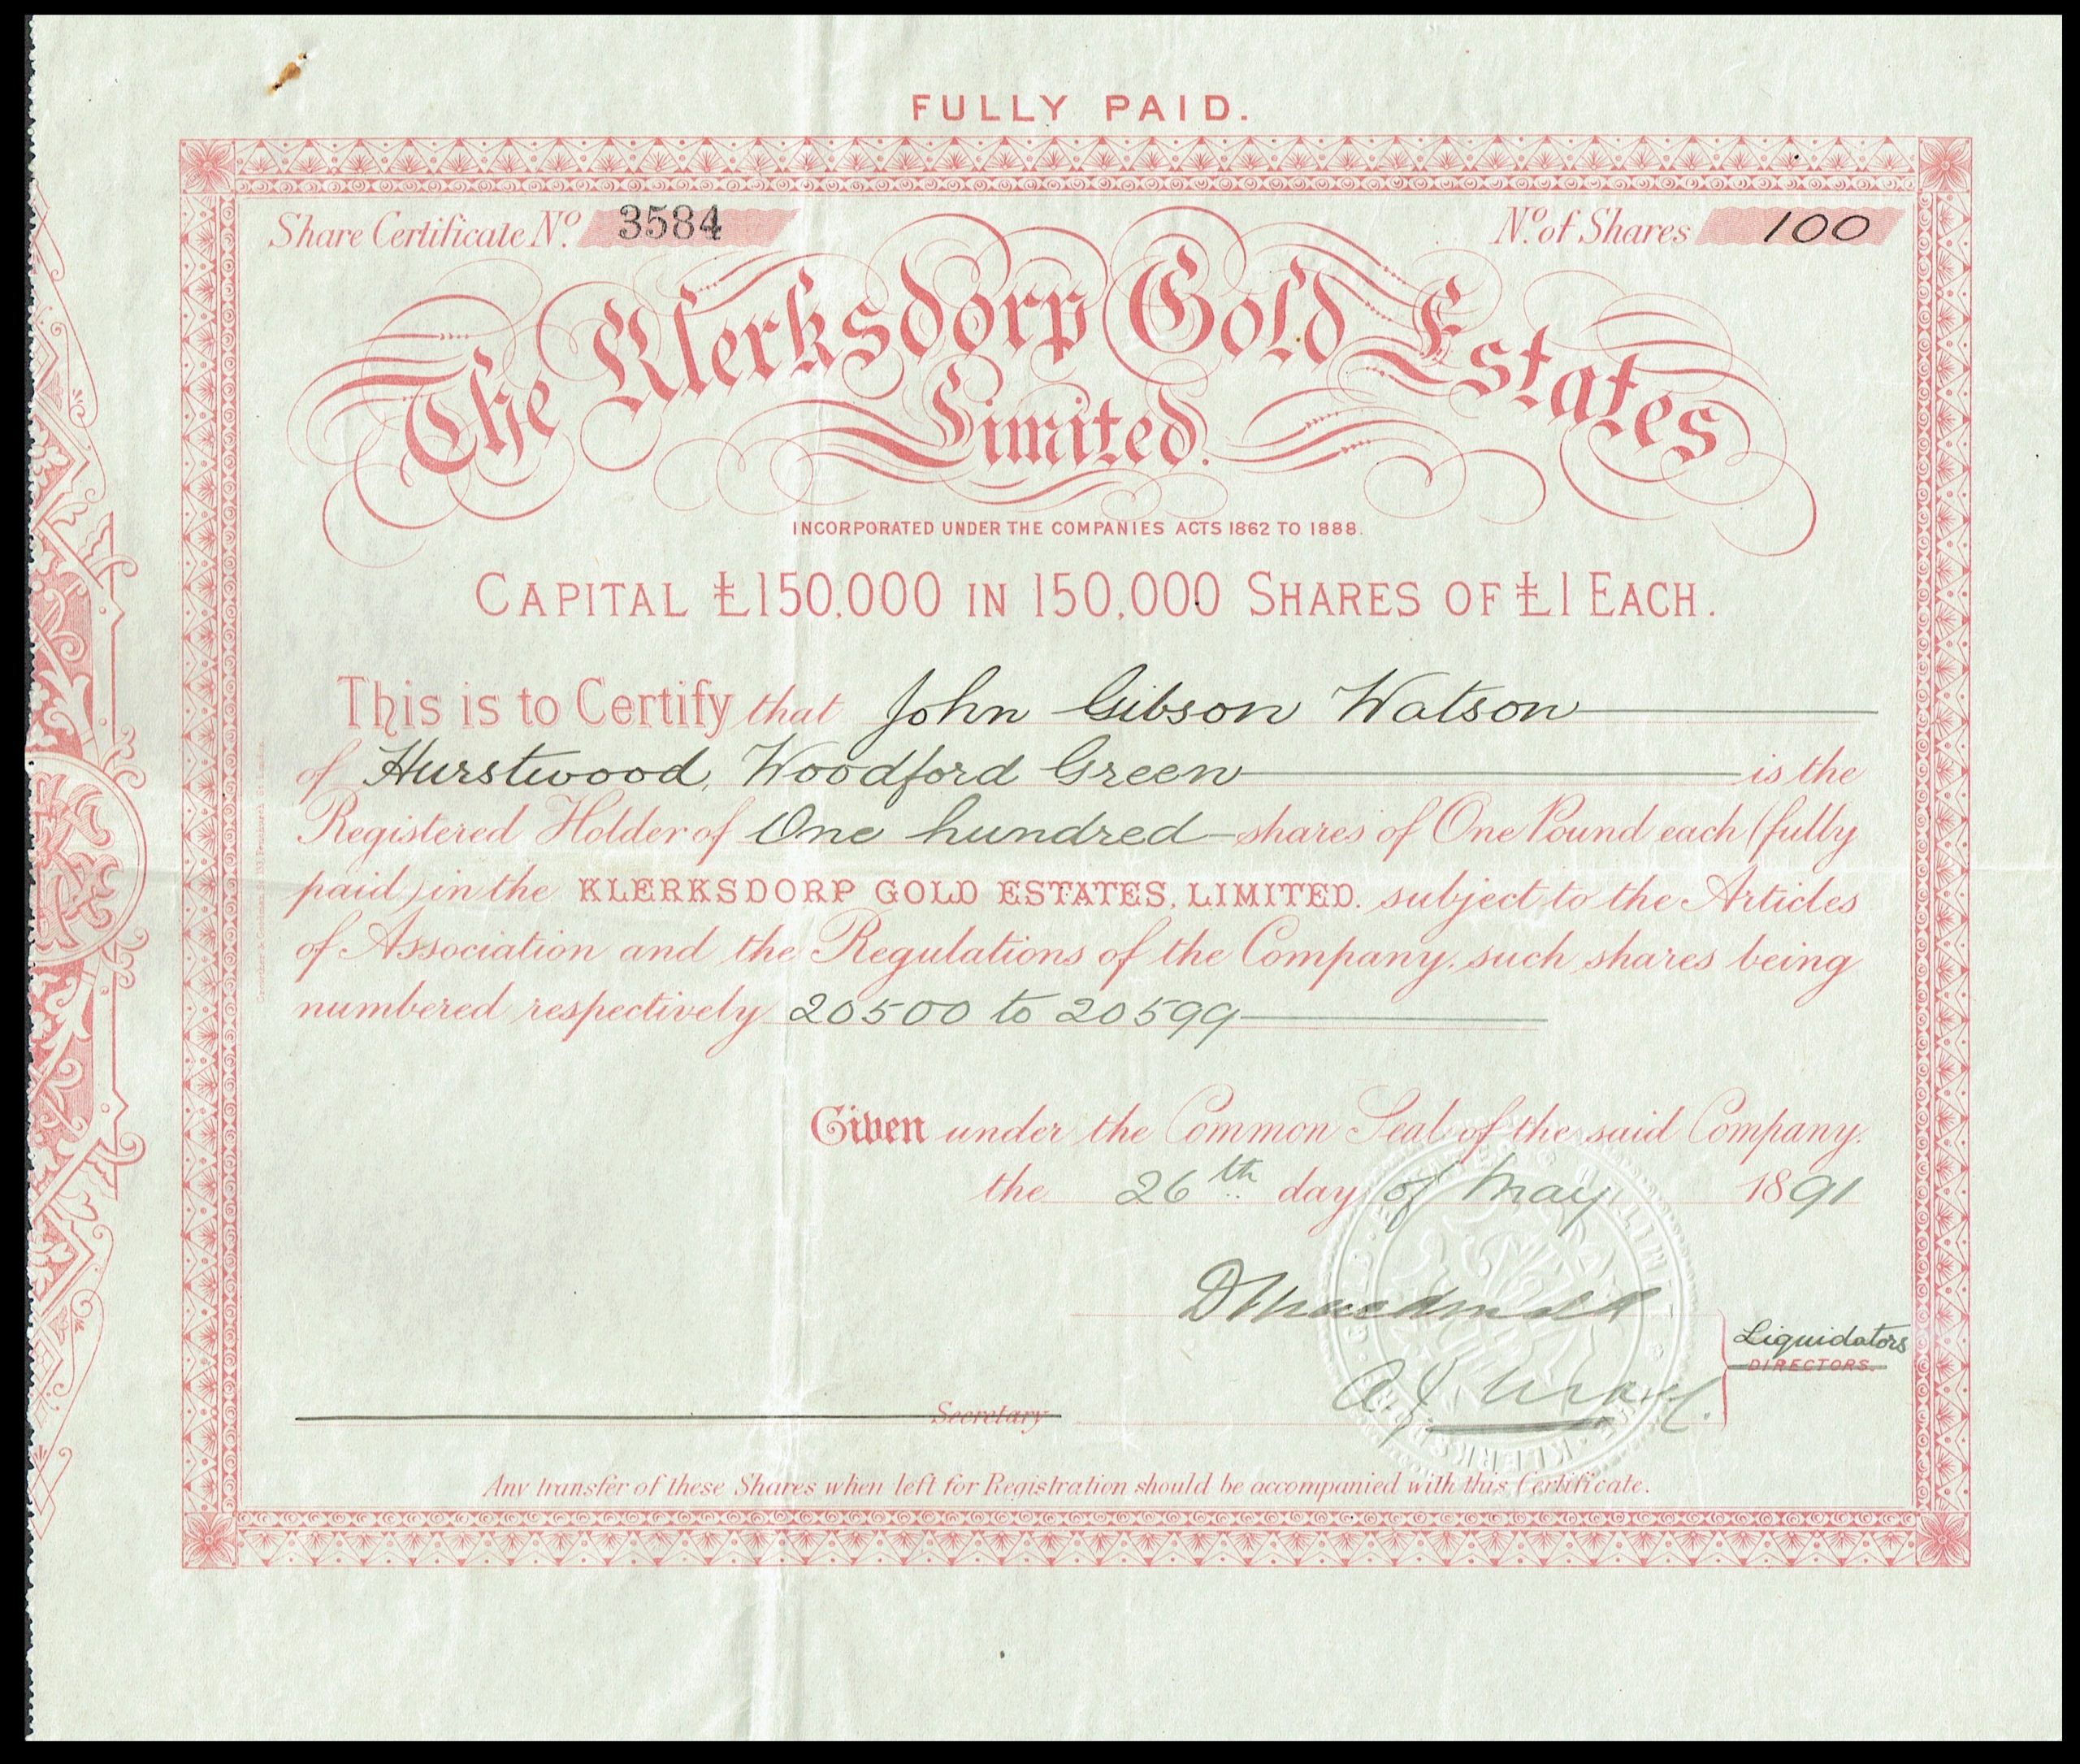 FULLY PAID.
Share Certificate No. 3584
No. of Shares 100
The Klerksdorp Gold Estates
Limited.
INCORPORATED UNDER THE COMPANIES ACTS 1862 TO 1888.
CAPITAL £150,000 IN 150,000 SHARES OF £1 EACH.
This is to Certify that John Gibson Watson
of Hurstwood, Woodford Green is the
Registered Holder of One hundred shares of One Pound each (fully
paid) in the KLERKSDORP GOLD ESTATES, LIMITED. subject to the Articles
of Association and the Regulations of the Company, such shares being
numbered respectively 20500 to 20599
Given under the Common Seal of the said Company.
the 26th day of May 1891
Liquidators
DIRECTORS.
Secretary
Any transfer of these Shares when left for Registration should be accompanied with this Certificate.